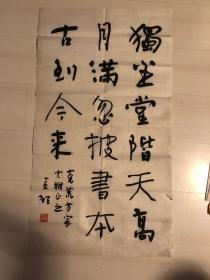 獨坐堂階天高
月滿忽披書本
古到今来